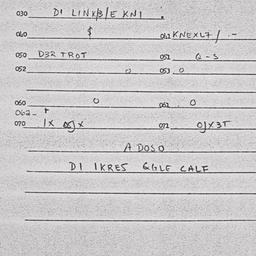 030 D1 LINK/B/E KN1 .
040 $ 041 KNEXL7/ .-
050 D3R TROT 051 G-S
052 0 053 0
060 0 061 0
062 +
070 1X 071 OJX3T
A DOSO
D1 1KRES GGLE CALF